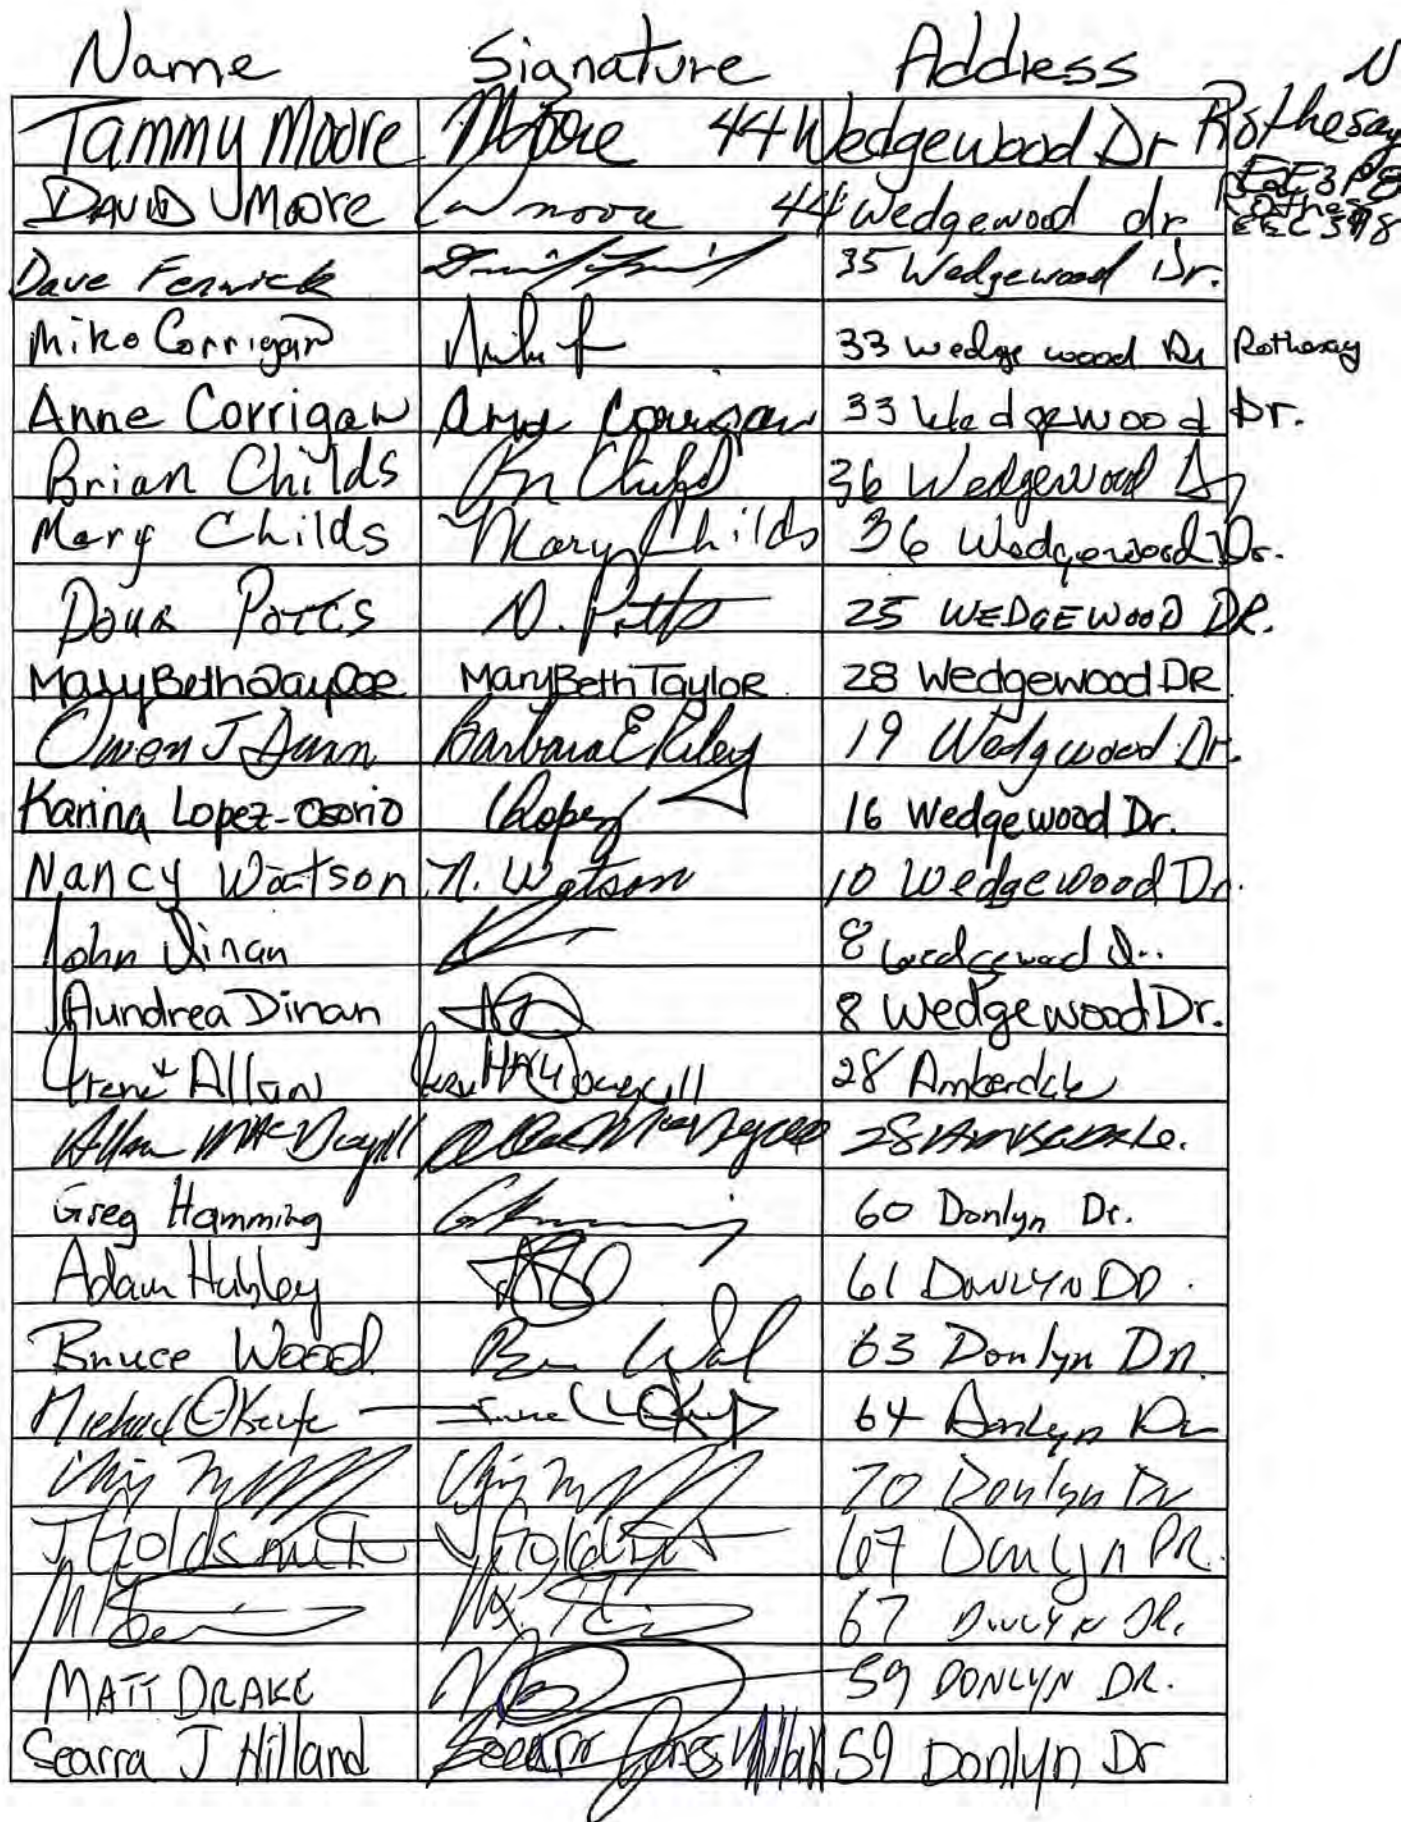 Name Signature Address N
Tammy Moore Moore 44 Wedgewood Dr Rothesay
E2E3P8
DAVID Moore moore 44 Wedgewood dr Rothesay
Dave Fenwick 35 Wedgewood Dr.
Mike Corrigan 33 wedge wood Dr Rothesay
Anne Corrigan Anne Corrigan 33 Wedgewood Dr.
Brian Childs Childs 36 Wedgewood Dr
Mary Childs Mary Childs 36 Wedgewood Dr.
Doug Potts D. Potts 25 WEDGEWOOD DR.
MaryBeth Taylor MaryBeth Taylor 28 Wedgewood DR
Owen J Dunn Barbara E Riley 19 Wedgwood Dr.
Karina Lopez-Osorio KLopez 16 Wedgewood Dr.
Nancy Watson N. Watson 10 Wedgewood Dr.
John Dinan 8 Wedgewood Dr.
Aundrea Dinan 8 Wedgewood Dr.
Irene Allan 28 Amberdale
Allan MacDougall Allan MacDougall 28 Amberdale.
Greg Hamming 60 Donlyn Dr.
Adam Hubley 61 DONLYN DR.
Bruce Wood 63 Donlyn Dr.
Michael O'Keefe 64 Donlyn Dr
70 Donlyn Dr
J Goldsmith J Goldsmith 67 Donlyn DR.
67 DONLYN DR.
MATT DRAKE 59 DONLYN DR.
Searra J Hilland Jones Hilland 59 Donlyn Dr